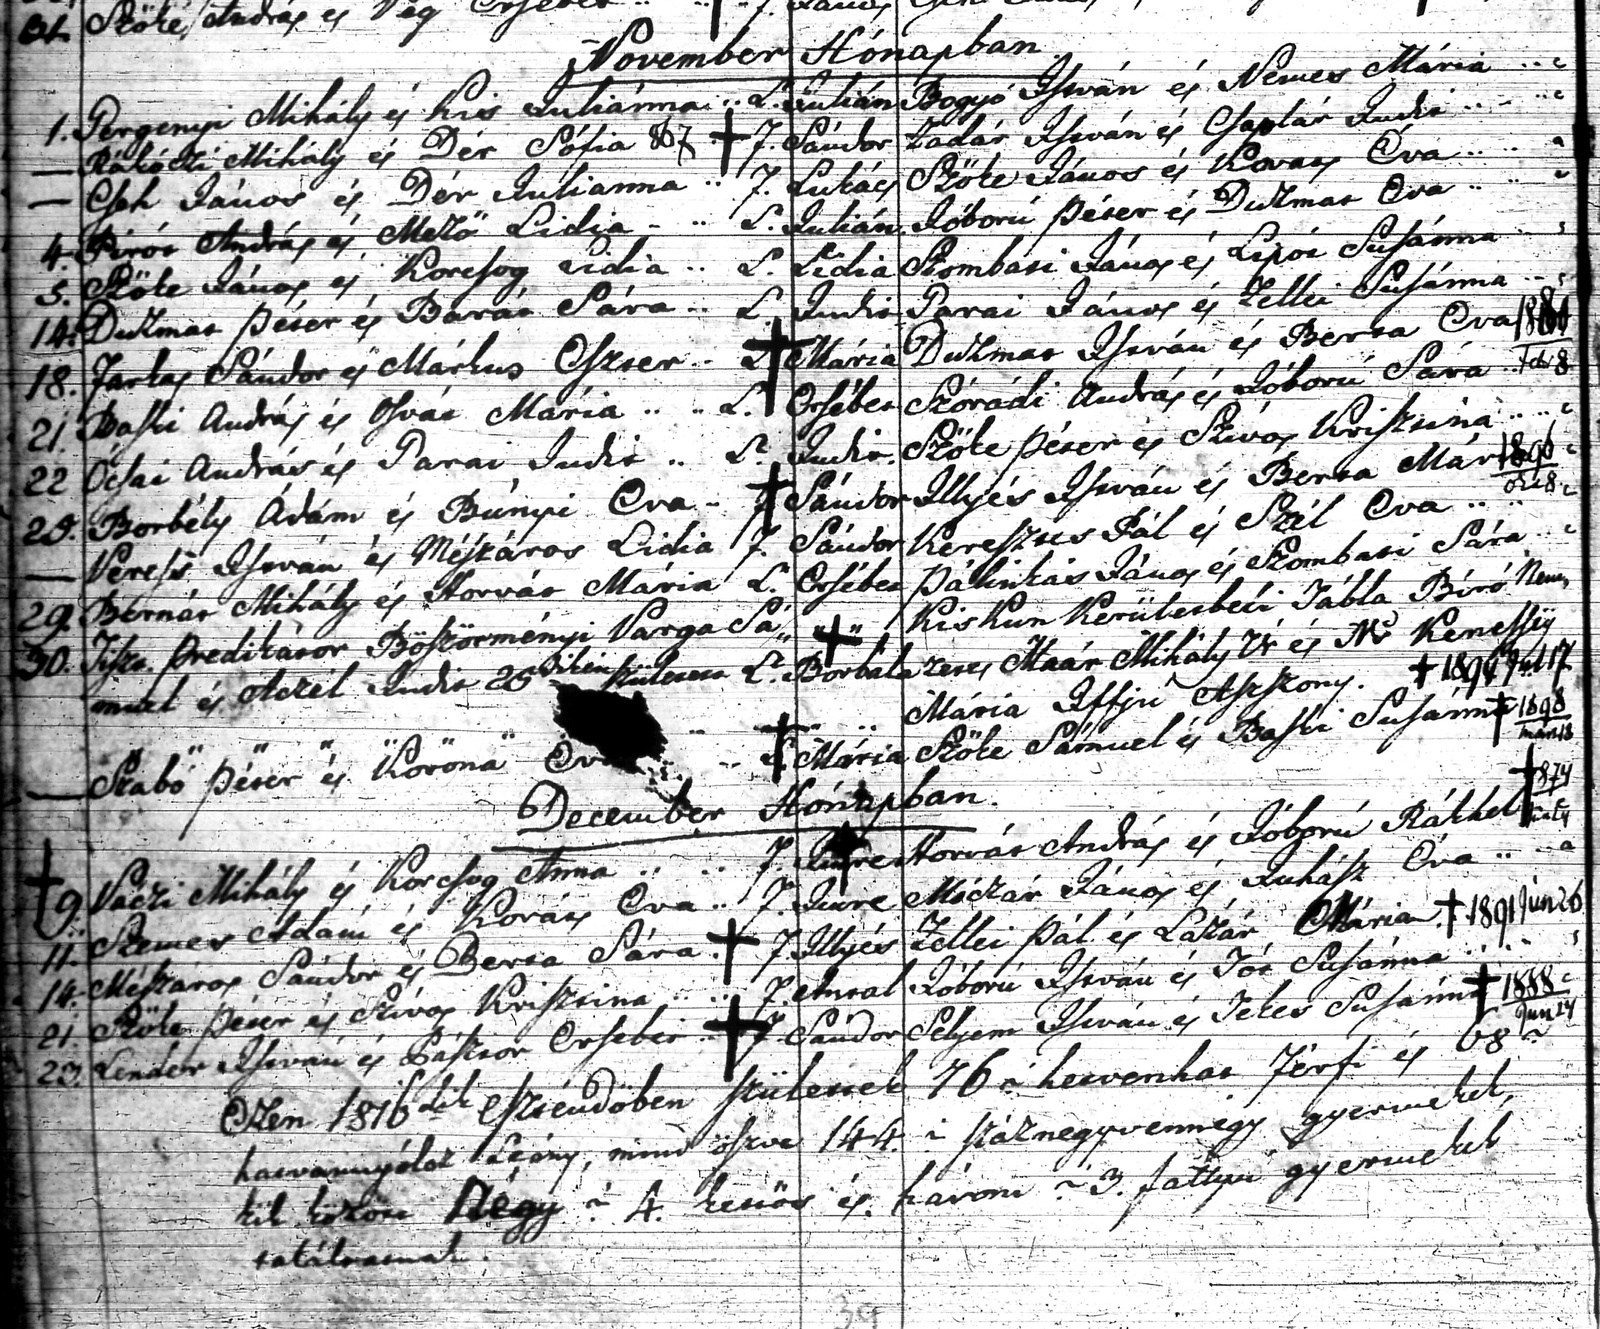 31. Szőke András és Vég Ersébet .. .. J. János
November Hónapban
1. Pergenyi Mihály és Kis Juliánna .. L. Julián Bogyó István és Nemes Mária .. ..
— Rákóczi Mihály és Dér Sófia 867 J. Sándor Zadár István és Csaplár Judit .. ..
— Cseh János és Dér Júlianna .. J. Lukács Szőke János és Kovács Éva .. ..
4. Pirós András és Mező Lidia - .. L. Julián Jóború Péter és Duzmat Éva .. ..
5. Szőke János és Korcsog Lidia .. L. Lidia Szombati János és Lipói Susánna ..
14. Duzmat Péter és Barát Sára .. L. Judit Parai János és Zellei Susánna ..
18. Farkas Sándor és Márkus Eszter .. L. Mária Duzmat István és Berta Éva Febr 8
21. Baski András és Osvát Mária .. .. L. Ersébet Szórádi András és Jóború Sára ..
22 Ócsai András és Parai Judit .. L. Judit. Szőke Péter és Szivos Krisztina .. ..
25. Borbély Ádám és Búnyi Éva .. J. Sándor Illyés István és Berta Már 1896
— Veress István és Mészáros Lidia J. Sándor Keresztes Pál és Szél Éva .. ..
29. Bernát Mihály és Horvát Mária L. Ersébet Pálinkás János és Szombati Sára ..
30. Tiszt. Prédikátor Böszörményi Varga Sá " " Kis Kun Kerületbéli Tábla Biró Nem,
muel és Aczél Judit 25 született L. Borbála zetes Maár Mihály Úr és Kenessey
Mária Iffjú Aszszony. † 1894 Jul 17
— Szabó Péter és Koróna Éva .. L. Mária Szőke Sámuel és Baski Susánna † 1898
December Hónapban.
9. Váczi Mihály és Korcsog Anna .. .. J. Imre Horvát András és Jóború Rákhel † 874
11. Szemes Ádám és Kovács Éva .. J. Imre Móczár János és Juhász Éva .. ..
14. Mészáros Sándor és Berta Sára † J. Illyés Zellei Pál és Lázár Mária † 1891 Jún 26
21. Szőke Péter és Szivos Krisztina .. .. J. Antal Jóború István és Tót Susánna ..
23. Lender István és Pásztor Ersébet .. † J. Sándor Selyem István és Tekes Susánna † 1888 Jun 24
Ezen 1816dik Esztendőben születtek 76 a: hetvenhat Férfi és 68 a:
hatvannyólcz Leány, mind öszve 144. a: száznegyvennégy gyermekek,
kik között Négy a: 4. kettős és három a: 3. fattyú gyermekek
találtatnak.
39